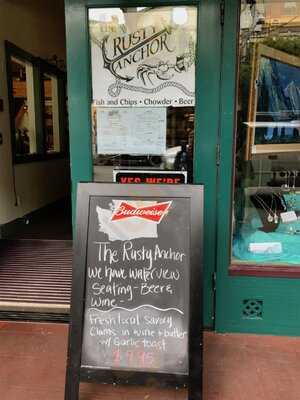 THE
RUSTY
ANCHOR
Fish and Chips • Chowder • Beer
YES WE'RE
Budweiser
The Rusty Anchor
we have water view
Seating - Beer &
Wine -
Fresh local Savory
Clams in wine + butter
w/ Garlic toast
$9.95